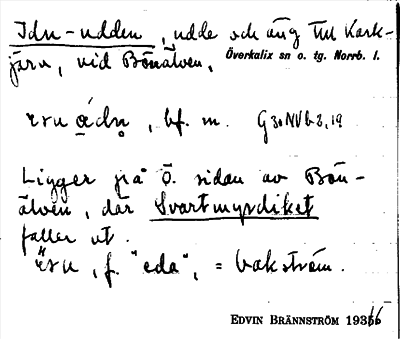 Idu-udden, udde och äng till Kark-
järn, vid Bönälven, Överkalix sn o. tg. Norrb. l.
bf. m. G 30 NV b 3, 19
Ligger på Ö. sidan av Bön-
älven, där Svartmyrdiket
faller ut.
f. "eda", = bakström.
EDVIN BRÄNNSTRÖM 1936